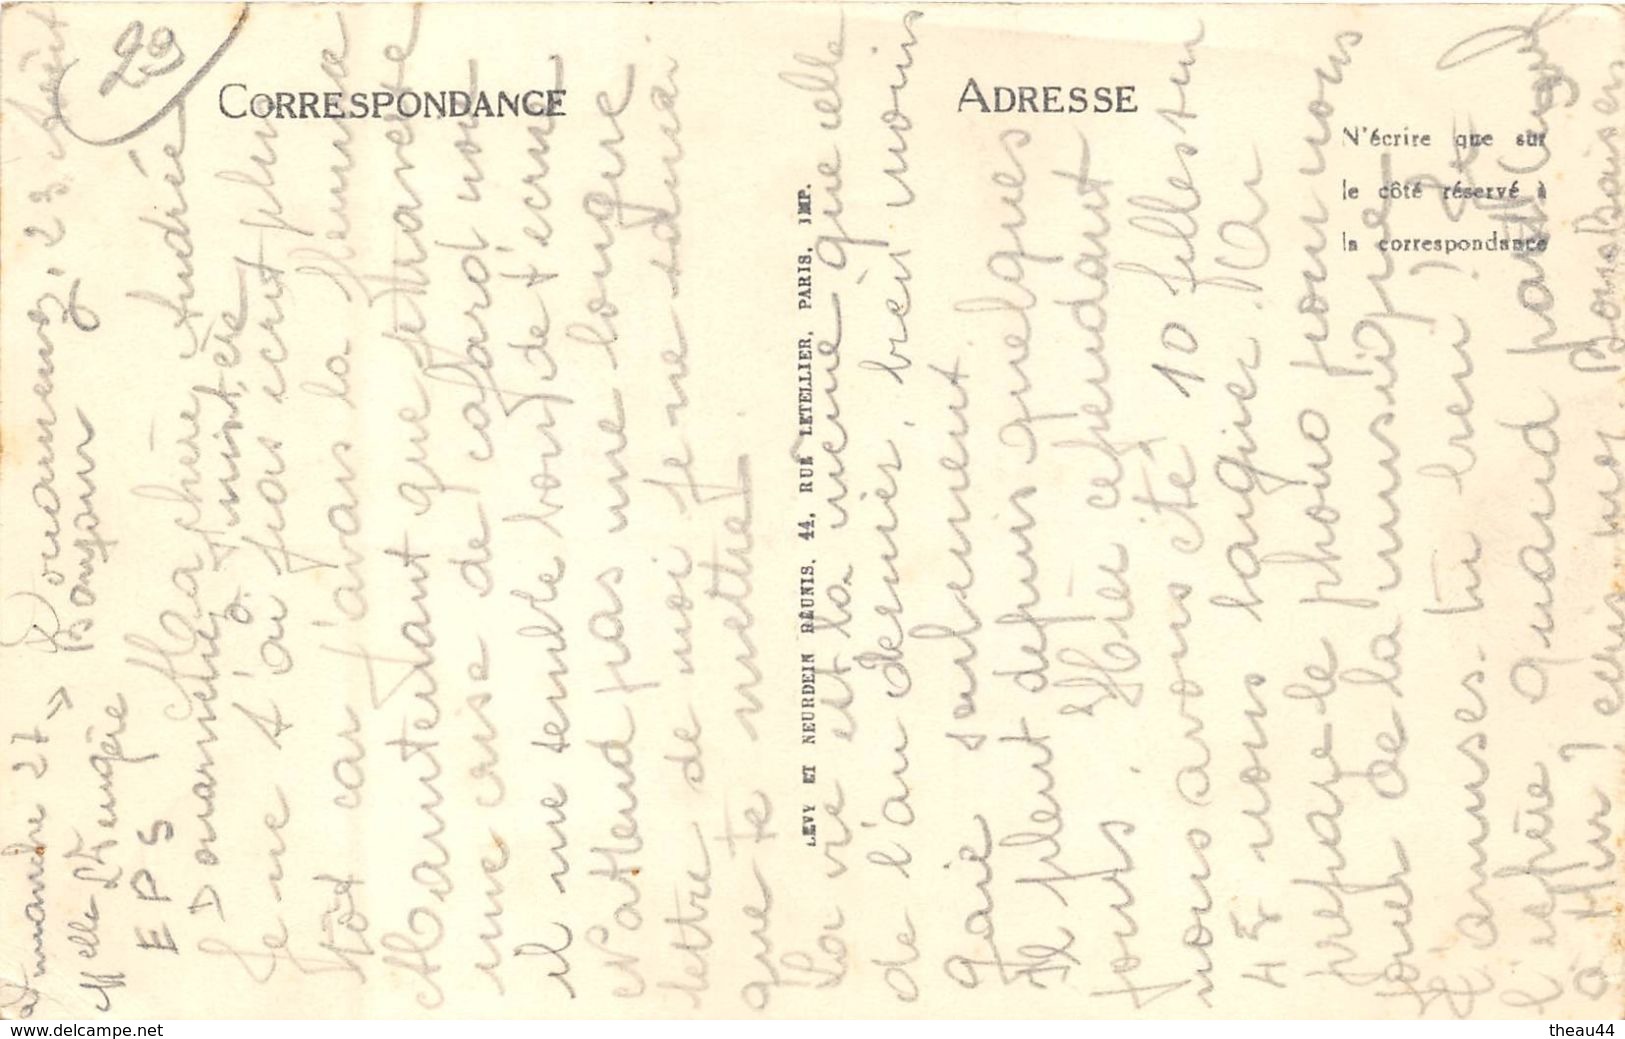 29
CORRESPONDANCE
ADRESSE
N'écrire que sur
le côté réservé à
la correspondance
LEVY ET NEURDEIN RÉUNIS. 44, RUE LETELLIER, PARIS. IMP.
Douarnenez, 23 Août
Dimanche 27 → Bonjour
Melle
E P S
Douarnenez Finistère
Ma chère Andrée
Je ne t'ai pas écrit plus
tôt car j'avais la flemme
Maintenant que je traverse
une crise de cafard noir
il me semble bon de t'écrire
N'attend pas une longue
lettre de moi je ne sais
que te mettre!
La vie est la même que celle
de l'an dernier, bien moins
gaie seulement.
Il pleut depuis quelques
jours. Hier cependant
nous avons été 10 filles en
nous baigner. On
prépare le phono pour nous
jouer de la musique
T'amuses-tu bien?
J'espère quand
à Mur? écris moi. Bons baisers